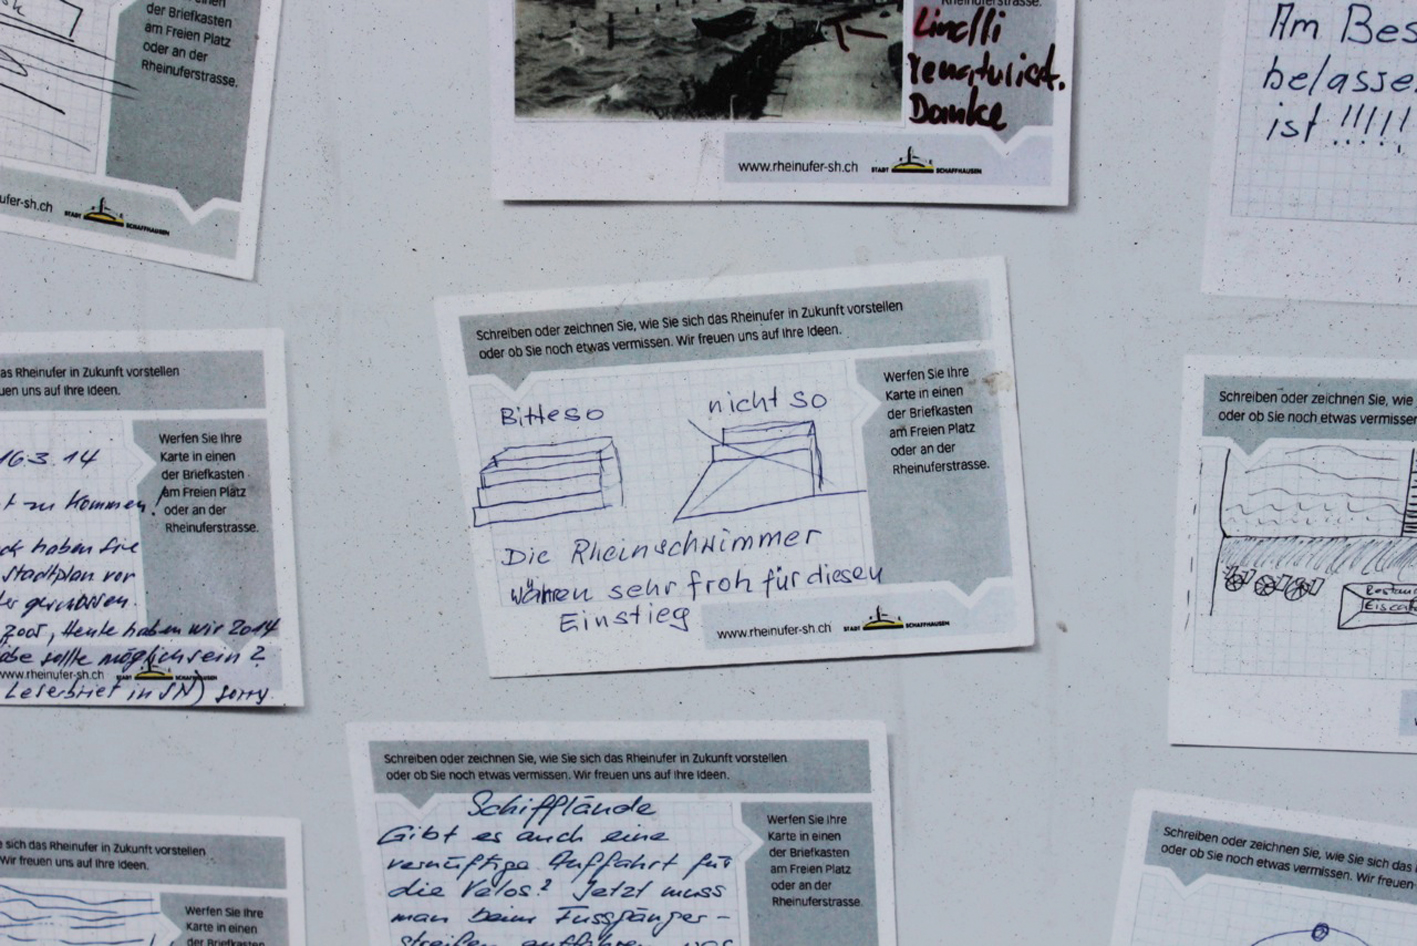 der Briefkasten
am Freien Platz
oder an der
Rheinuferstrasse.
ufer-sh.ch
STADT SCHAFFHAUSEN
Rheinuferstrasse.
renaturiert.
Danke
www.rheinufer-sh.ch
STADT SCHAFFHAUSEN
Am Bes
belasse
ist !!!!!
Schreiben oder zeichnen Sie, wie Sie sich das Rheinufer in Zukunft vorstellen
oder ob Sie noch etwas vermissen. Wir freuen uns auf Ihre Ideen.
Werfen Sie Ihre
Karte in einen
der Briefkasten
am Freien Platz
oder an der
Rheinuferstrasse.
Bitte so
nicht so
Die Rheinschwimmer
währen sehr froh für diesen
Einstieg
www.rheinufer-sh.ch
STADT SCHAFFHAUSEN
as Rheinufer in Zukunft vorstellen
uen uns auf Ihre Ideen.
Werfen Sie Ihre
Karte in einen
der Briefkasten
am Freien Platz
oder an der
Rheinuferstrasse.
16.3.14
t zu kommen!
ck haben Sie
Stadtplan vor
der genossen.
2005, Heute haben wir 2014
abe sollte möglich sein?
www.rheinufer-sh.ch
Leserbrief in SN) sorry
Schreiben oder zeichnen Sie, wie
oder ob Sie noch etwas vermissen
Restau
Eisca
Schreiben oder zeichnen Sie, wie Sie sich das Rheinufer in Zukunft vorstellen
oder ob Sie noch etwas vermissen. Wir freuen uns auf Ihre Ideen.
Schifflände
Gibt es auch eine
vernüftige Auffahrt für
die Velos? Jetzt muss
man beim Fussgänger-
streifen auffahren
Werfen Sie Ihre
Karte in einen
der Briefkasten
am Freien Platz
oder an der
Rheinuferstrasse.
sich das Rheinufer in Zukunft vorstellen
Wir freuen uns auf Ihre Ideen.
Werfen Sie Ihre
Karte in einen
der Briefkasten
Schreiben oder zeichnen Sie, wie Sie sich das
oder ob Sie noch etwas vermissen. Wir freuen